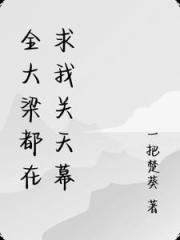 全大梁都在
求我关天幕
一把楚葵 著